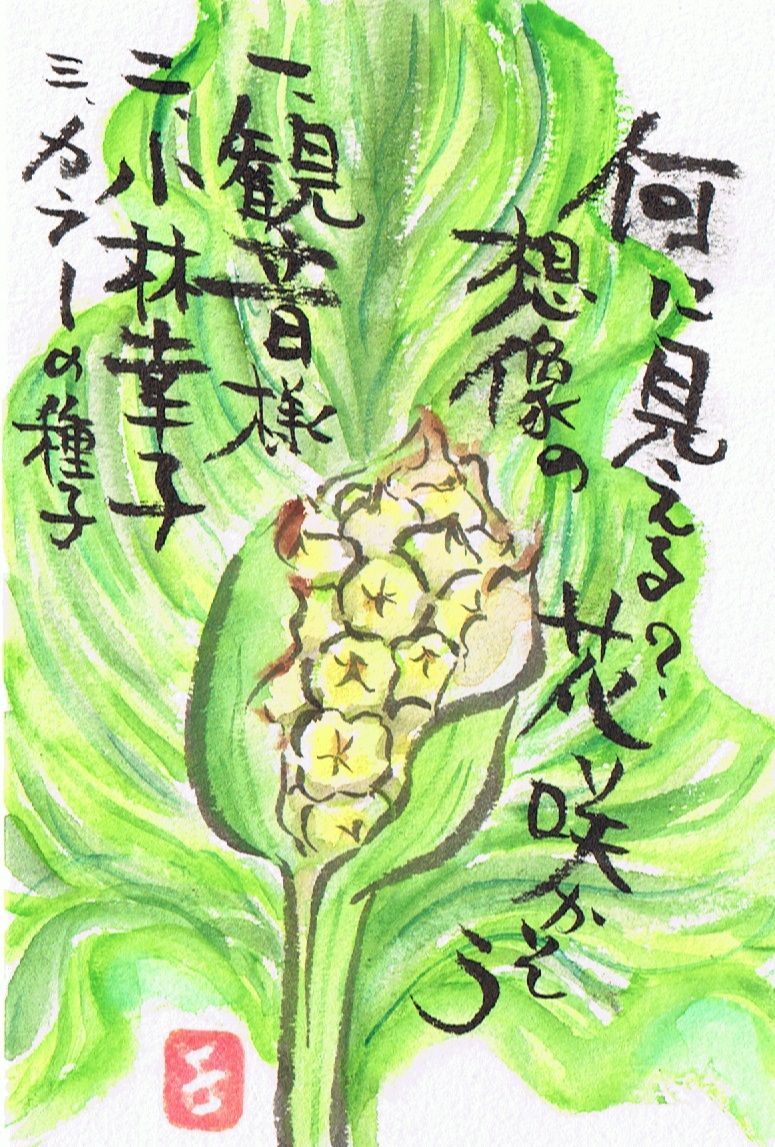 何に見える?
想像の
花咲かそう
一、観音様
二、小林幸子
三、カラーの種子